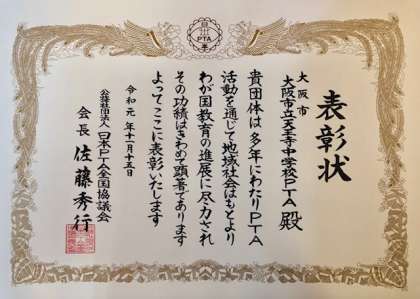 PTA
表彰状
大阪市
大阪市立天王寺中学校PTA殿
貴団体は多年にわたりPTA
活動を通じて地域社会はもとより
わが国教育の進展に尽力され
その功績はきわめて顕著であります
よってここに表彰いたします
令和元年十一月十五日
公益社団法人日本PTA全国協議会
会長 佐藤秀行